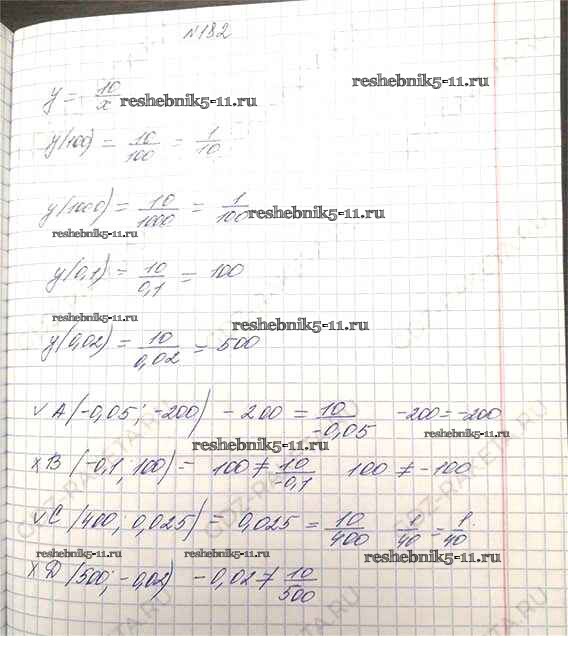 №182
reshebnik5-11.ru
y = 10/x reshebnik5-11.ru
y(100) = 10/100 = 1/10
y(1000) = 10/1000 = 1/100 reshebnik5-11.ru
reshebnik5-11.ru
y(0,1) = 10/0,1 = 100
reshebnik5-11.ru
y(0,02) = 10/0,02 = 500
∨ A (-0,05; -200) -200 = 10/-0,05 -200 = -200
reshebnik5-11.ru reshebnik5-11.ru
× B (-0,1; 100) = 100 ≠ 10/-0,1 100 ≠ -100
∨ C (400; 0,025) = 0,025 = 10/400 1/40 = 1/40
reshebnik5-11.ru reshebnik5-11.ru reshebnik5-11.ru
× D (500; -0,02) -0,02 ≠ 10/500